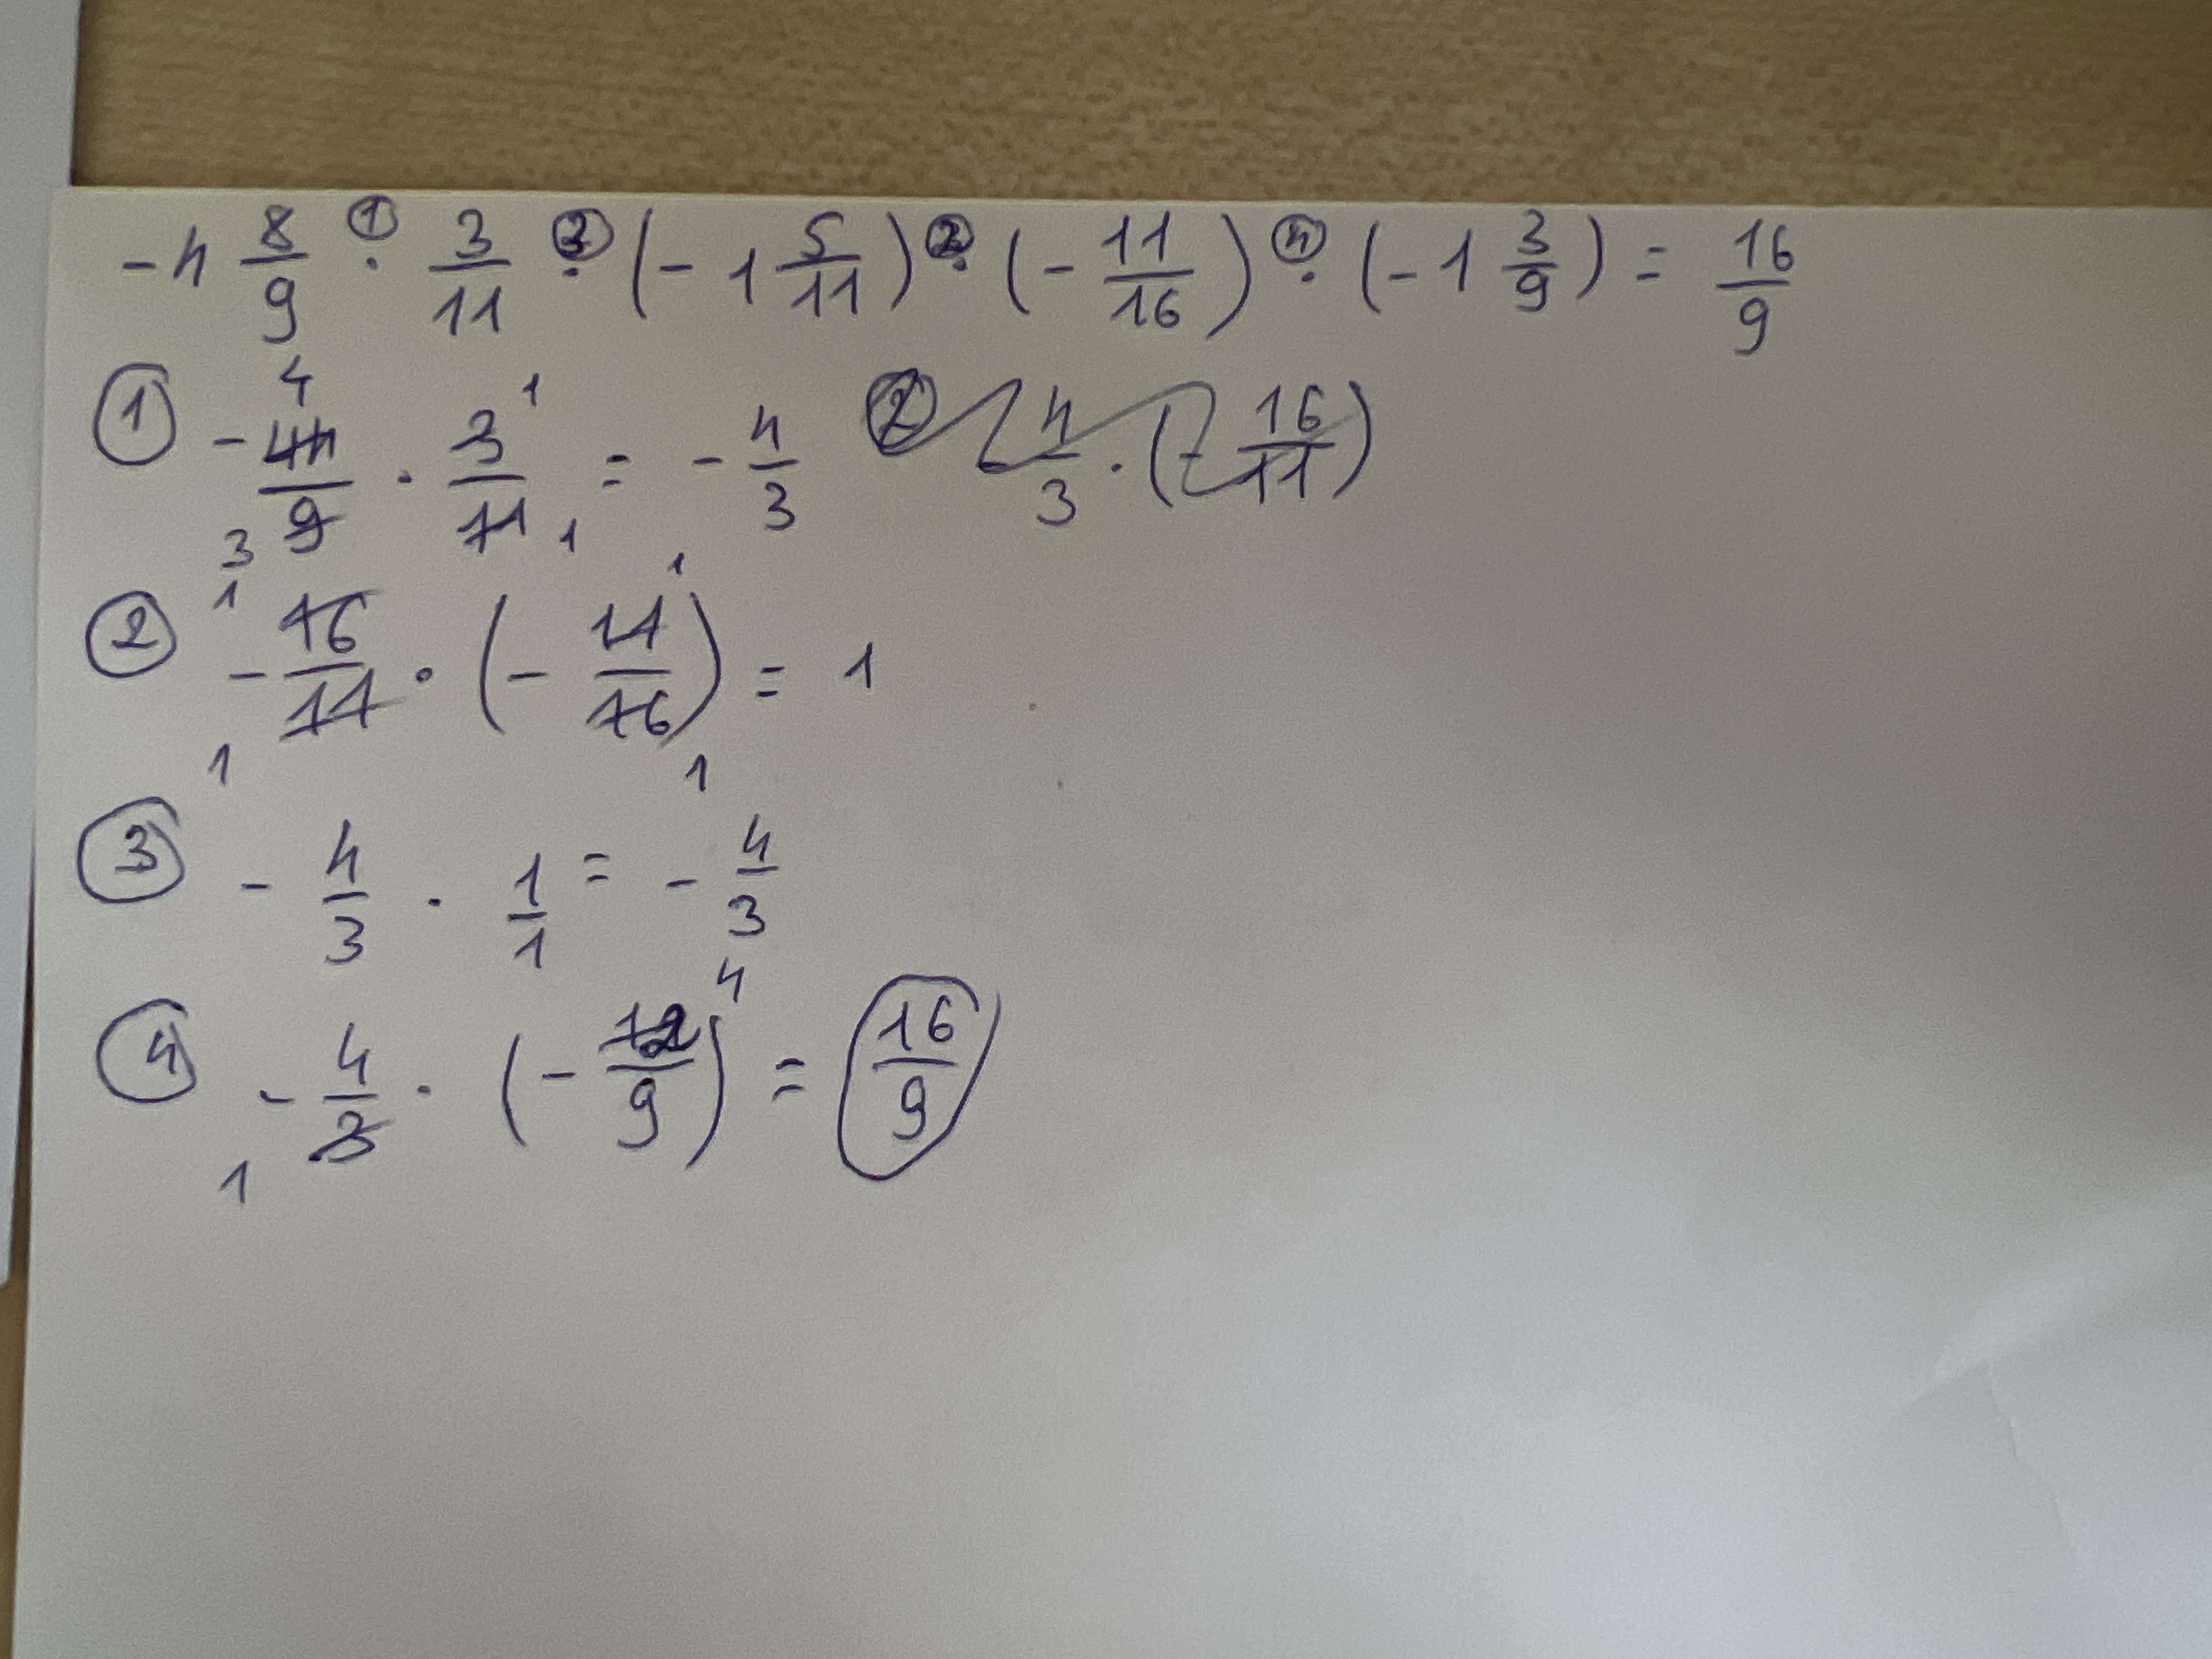 -4 8/9 ① · 3/11 ③ · (-1 5/11) ② · (-11/16) ④ · (-1 3/9) = 16/9
① -44/9 · 3/11 = -4/3 4 3 1 1 ② -4/3 · (-16/11)
② -16/11 · (-11/16) = 1 1 1 1 1
③ -4/3 · 1/1 = -4/3
④ -4/3 · (-12/9) = 16/9 1 4